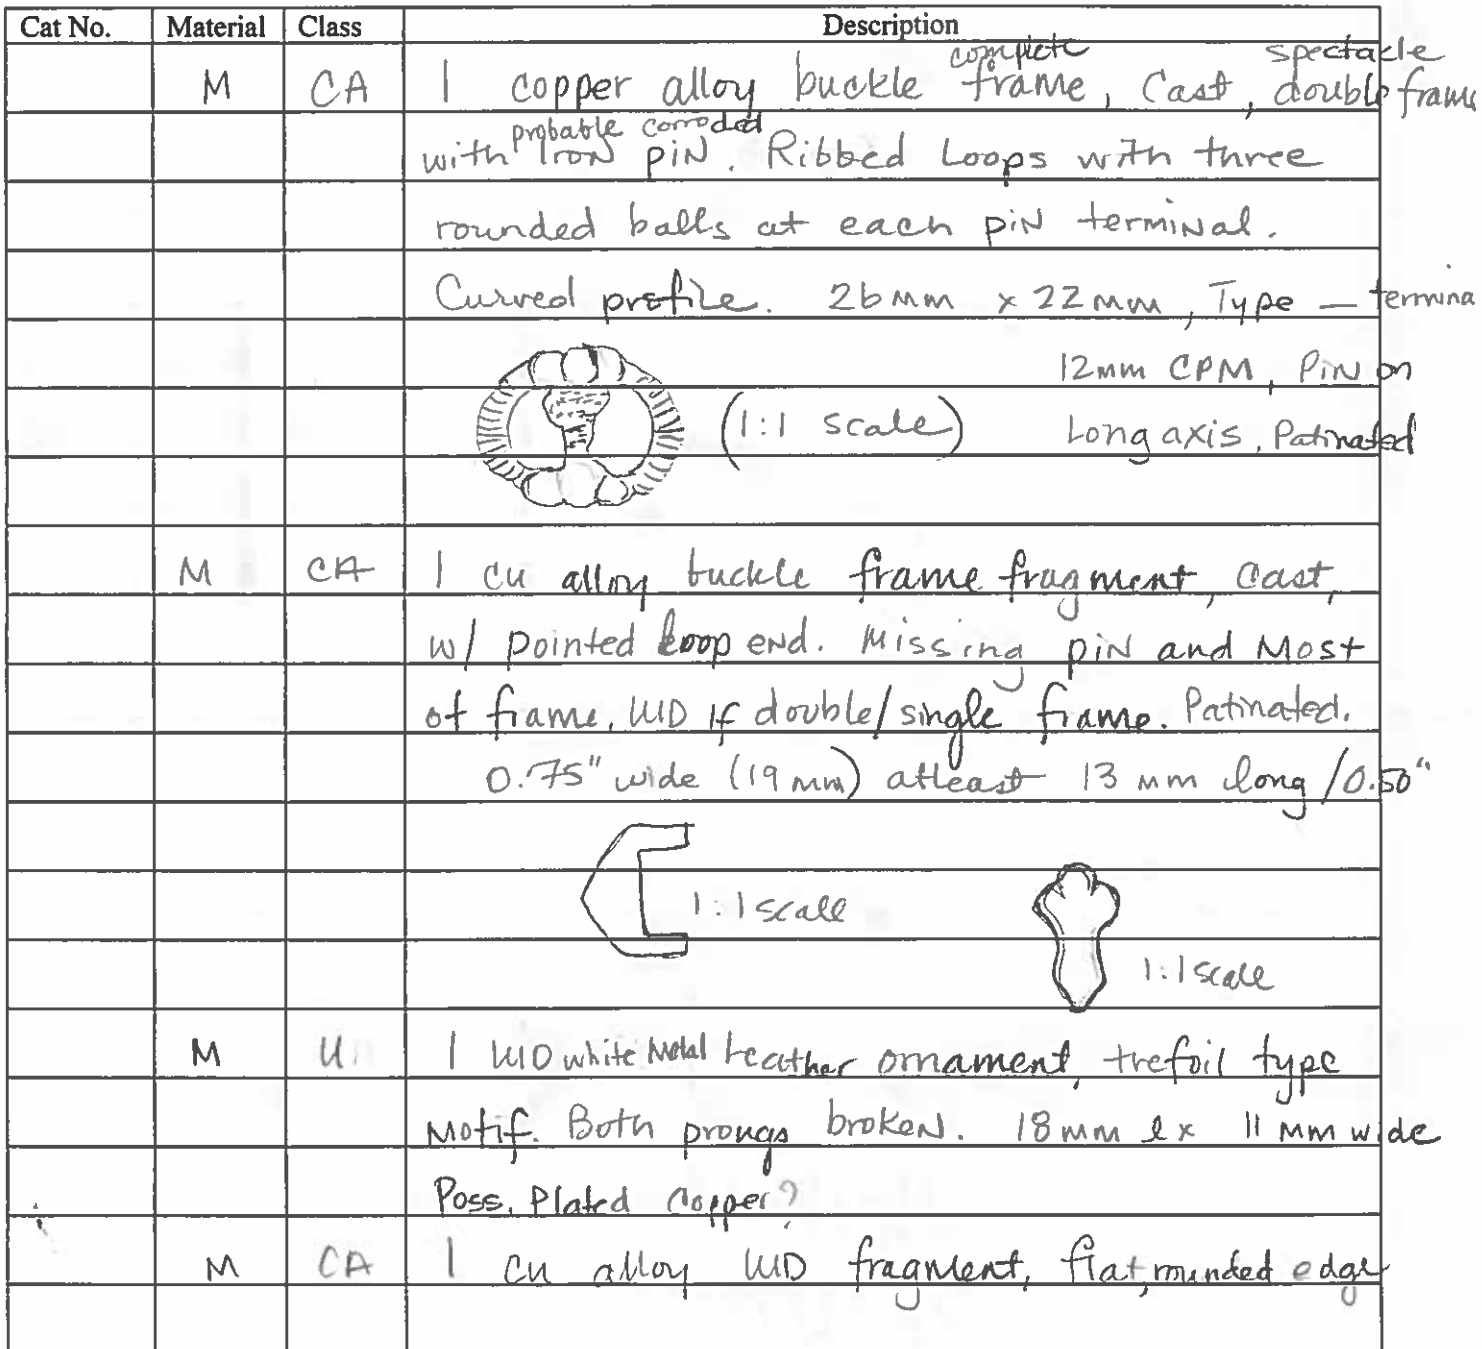 Cat No. Material Class Description
complete spectacle
M CA 1 copper alloy buckle frame, Cast, double frame
probable corroded
with Iron pin. Ribbed Loops with three
rounded balls at each pin terminal.
Curved profile. 26mm x 22mm, Type — termina
12mm CPM, Pin on
(1:1 scale) Long axis, Patinated
M CA 1 cu alloy buckle frame fragment, Cast,
w/ pointed loop end. Missing pin and Most
of frame. UID if double/single frame. Patinated.
0.75" wide (19 mm) atleast 13 mm long /0.50"
1:1 scale
1:1 scale
M U 1 UID white Metal Leather ornament, trefoil type
Motif. Both prongs broken. 18 mm l x 11 mm wide
Poss. Plated Copper?
M CA 1 cu alloy UID fragment, flat, rounded edge